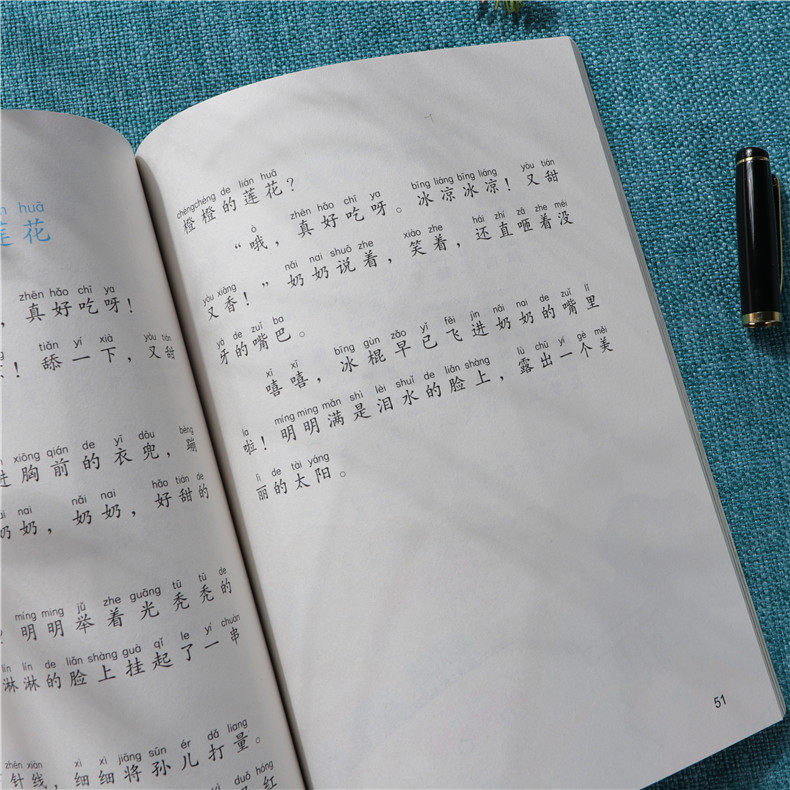 huā
莲花
zhēn hǎo chī ya
，真好吃呀！
tiǎn yí xià yòu tián
！舔一下，又甜
xiōng qián de yī dōu bèng
进胸前的衣兜，蹦
nai nǎi nai hǎo tián de
奶奶，奶奶，好甜的
míng míng jǔ zhe guāng tū tū de
？明明举着光秃秃的
lín lín de liǎn shàng guà qǐ le yí chuàn
淋淋的脸上挂起了一串
zhēn xiàn xì xì jiāng sūn ér dǎ liang
针线，细细将孙儿打量。
hóng
红
chéngchéng de lián huā
橙橙的莲花？
ò zhēn hǎo chī ya bīng liáng bīng liáng yòu tián
“哦，真好吃呀。冰凉冰凉！又甜
yòu xiāng nǎi nai shuō zhe xiào zhe hái zhí zā zhe méi
又香！”奶奶说着，笑着，还直咂着没
yá de zuǐ ba
牙的嘴巴。
xī xī bīng gùn zǎo yǐ fēi jìn nǎi nai de zuǐ lǐ
嘻嘻，冰棍早已飞进奶奶的嘴里
la míng míng mǎn shì lèi shuǐ de liǎn shàng lù chū yí gè měi
啦！明明满是泪水的脸上，露出一个美
lì de tài yáng
丽的太阳。
51